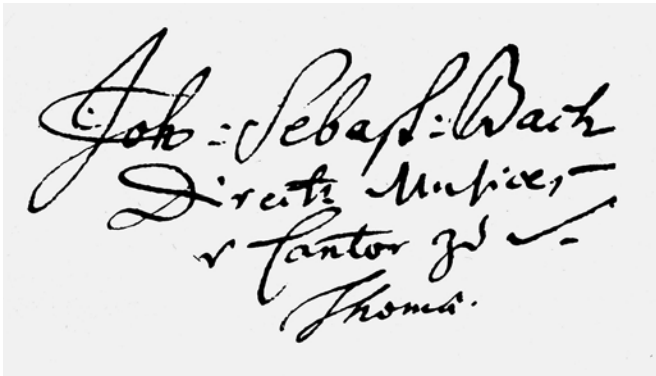 Joh: Sebast: Bach
Direct: Musices,
v Cantor zu
Thomä.